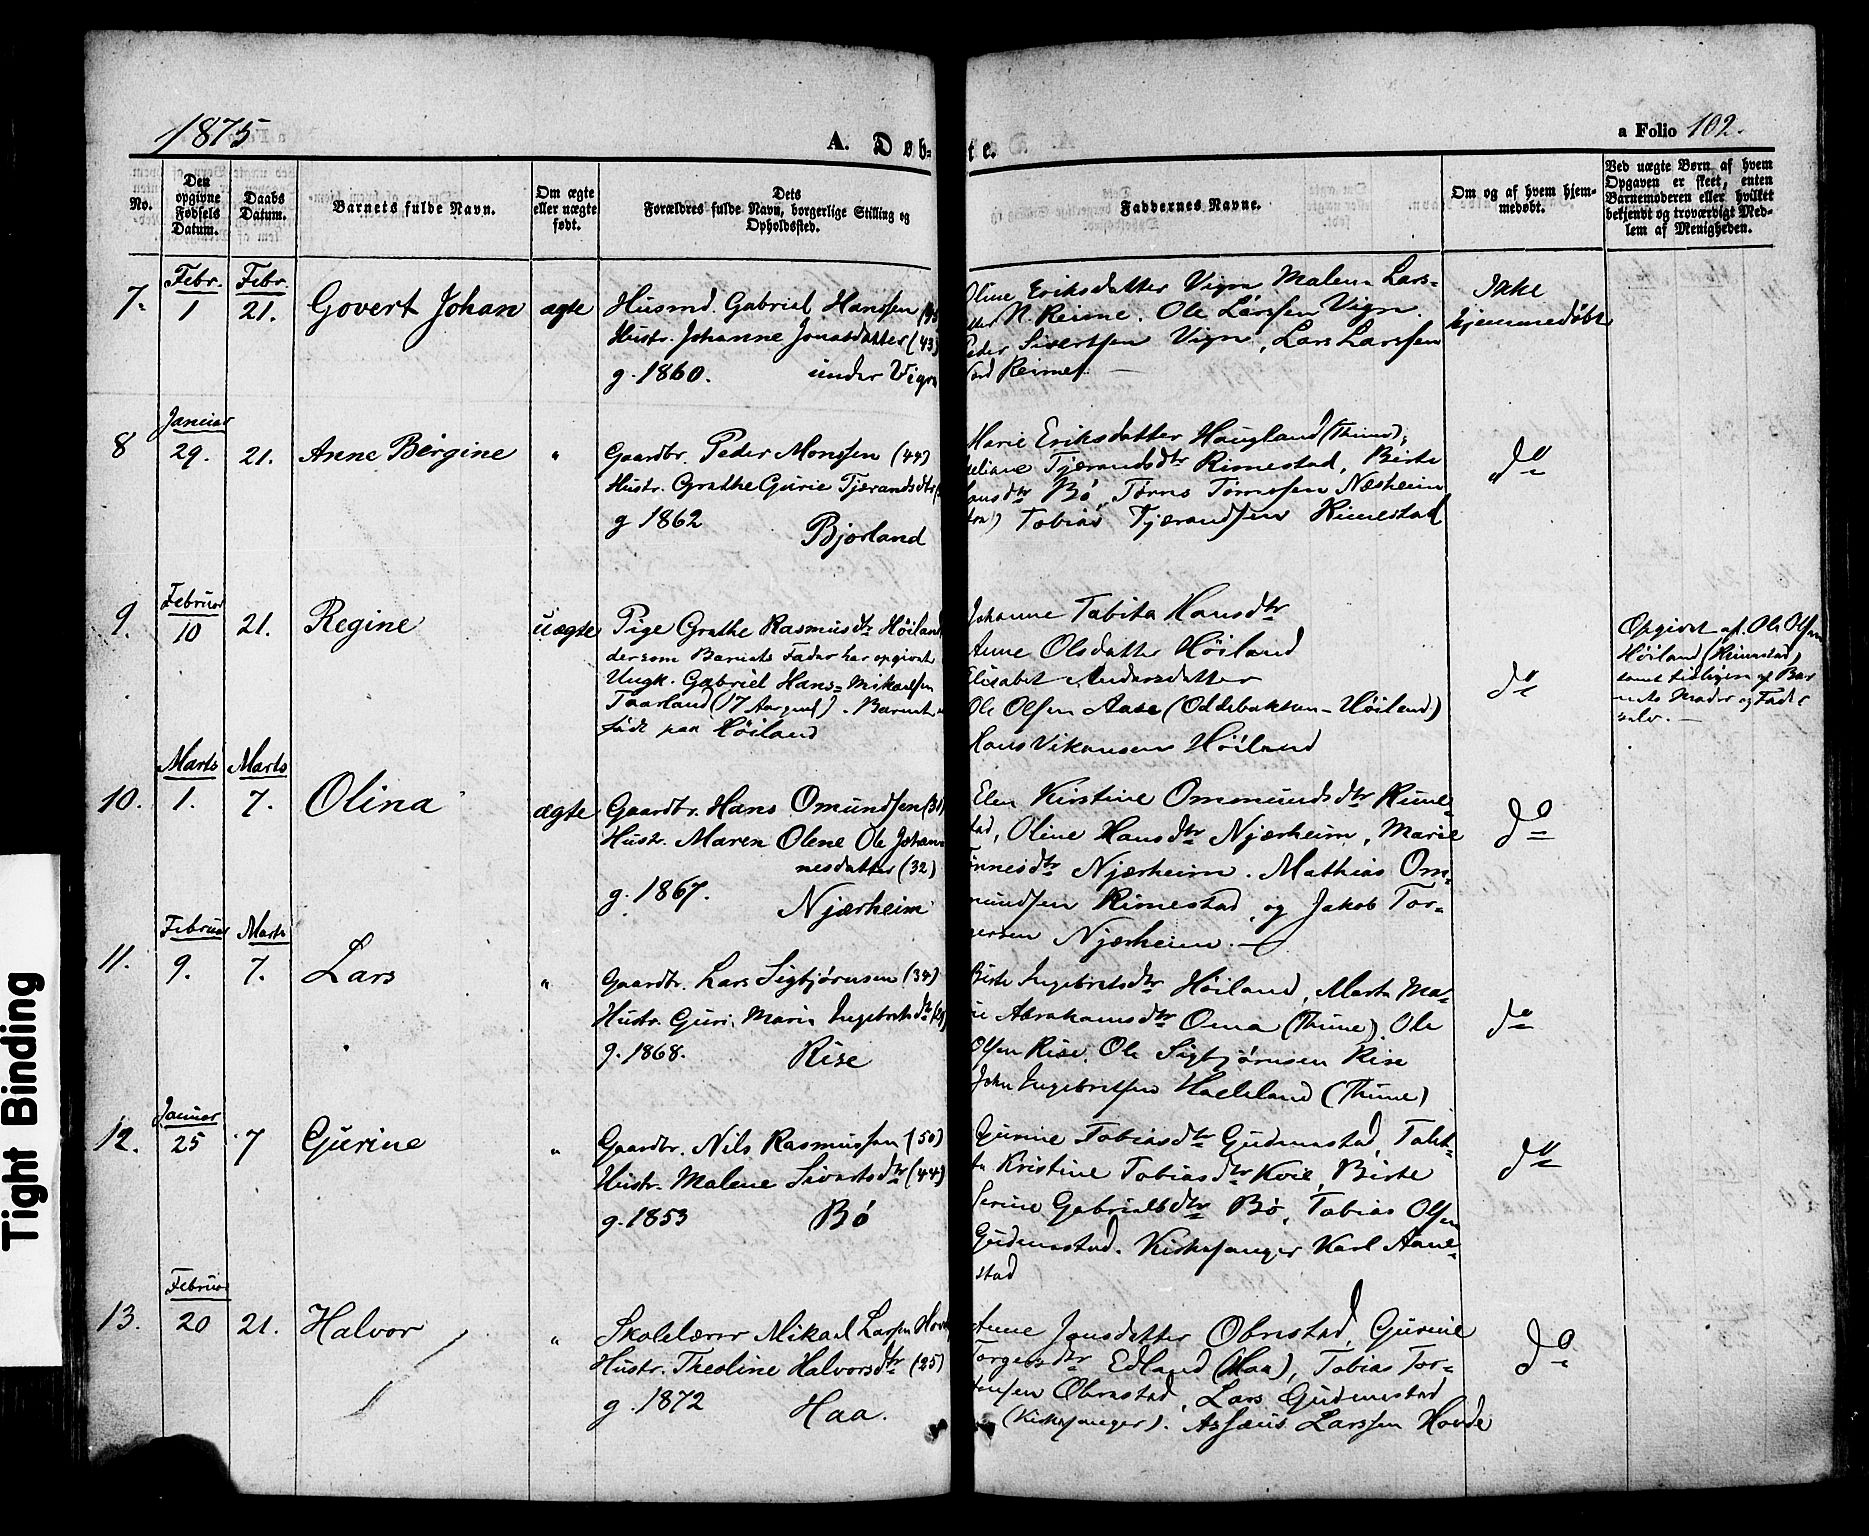 1875
A. Døb-
te.
a Folio 102.
No.
Den opgivne Fødsels Datum.
Daabs Datum.
Barnets fulde Navn.
Om ægte eller uægte født.
Dets Forældres fulde Navn, borgerlige Stilling og Opholdssted.
Faddernes Navne.
Om og af hvem hjem-
medøbt.
Ved uægte Børn af hvem
Opgaven er skeet, enten
Barnemoderen eller hvilket
bekjendt og troværdigt Med-
lem af Menigheden.
7.
Febr.
1
Febr.
21.
Govert Johan
ægte
Husmd. Gabriel Hanssen
Hustr. Johanne Jonasdatter (43)
g. 1860. under Vigre
Oline Eriksdatter Vigre Malena Lars-
N. Reime. Ole Larssen Vigre.
Peder Sivertsen Vigre, Lars Larssen
Reime.
Ikke
hjemmedøbt
8
Januar
29.
21.
Anne Bergine
"
Gaardbr. Peder Monssen (44)
Hustr. Grathe Gurie Tjærandsdtr
g 1862
Bjorland
Marie Eriksdatter Haugland (Thime),
Tjærandsdtr Rimestad, Birte
Bø, Tørres Tørressen Næsheim
Tobias Tjærandsen Rimestad
do
9.
Februar
10
21.
Regine
uægte
Pige Grathe Rasmusdtr Høiland,
dersom Barnets Fader har opgivet
Ungk. Gabriel Hans Mikaelsen
Taarland (17 Aar gml). Barnet
født paa Høiland
Johanne Tabita Hansdtr
Anne Olsdatter Høiland
Elisabet Andersdatter
Ole Olsen Aase (Oddebakken-Høiland)
Hans Hansens Høiland
do
Opgivet af Ole Olsen
Høiland (Rimestad)
samt tidligere af Bar-
nets Moder og Fader
selv.
10.
Marts
1.
Marts
7.
Olina
ægte
Gaardbr. Hans Omundsen (31)
Hustr. Maren Olene Ole Johan-
nesdatter (32)
g. 1867.
Njærheim
Elen Kirstine Ommundsdtr Rime-
stad, Oline Hansdtr Njærheim, Marie
Tønnesdtr Njærheim. Mathias Om-
mundsen Rimestad, og Jakob Tor-
gersen Njærheim.
do
11.
Februar
9.
Marts
7.
Lars
"
Gaardbr. Lars Sigbjørnsen (34)
Hustr. Guri Maria Ingebretsdtr
g. 1868. Risе
Birte Ingebretsdtr Høiland, Marta Ma-
rie Abrahamsdtr Oma (Thime), Ole
Olsen Rise. Ole Sigbjørnsen Rise
John Ingebretsen Haaland (Thime)
do
12.
Januar
25
7
Gurine
"
Gaardbr. Nils Rasmussen (50)
Hustr. Malene Sivertsdtr (44)
g. 1853 Bø
Gurine Tobiasdtr Gudmestad, Tabi-
ta Kristine Tobiasdtr Kvie, Birte
Serine Gabrielsdtr Bø, Tobias Olsen
Gudmestad. Kirkesanger Karl Aane-
stad
do
13.
Februar
20
21.
Halvor
"
Skolelærer Mikael Larsen Hovde
Hustr. Theoline Halvorsdtr (25)
g. 1872 Haa.
Anne Jonsdatter Obrestad, Gurine
Torgersdtr Edland (Haa), Tobias Tor-
Obrestad, Lars Gudmestad
(Kirkesanger). Assæus Larssen Hovde
do
Tight Binding